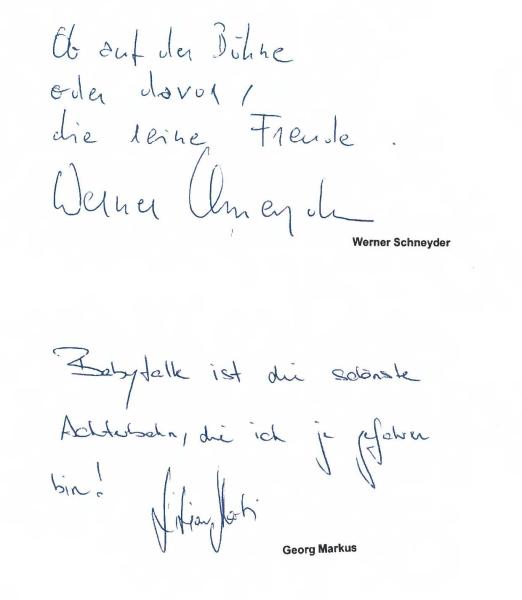 Ob auf der Bühne
oder davor,
die reine Freude.
Werner Schneyder
Werner Schneyder
Babytalk ist die schönste
Achterbahn, die ich je gefahren
bin!
Georg Markus